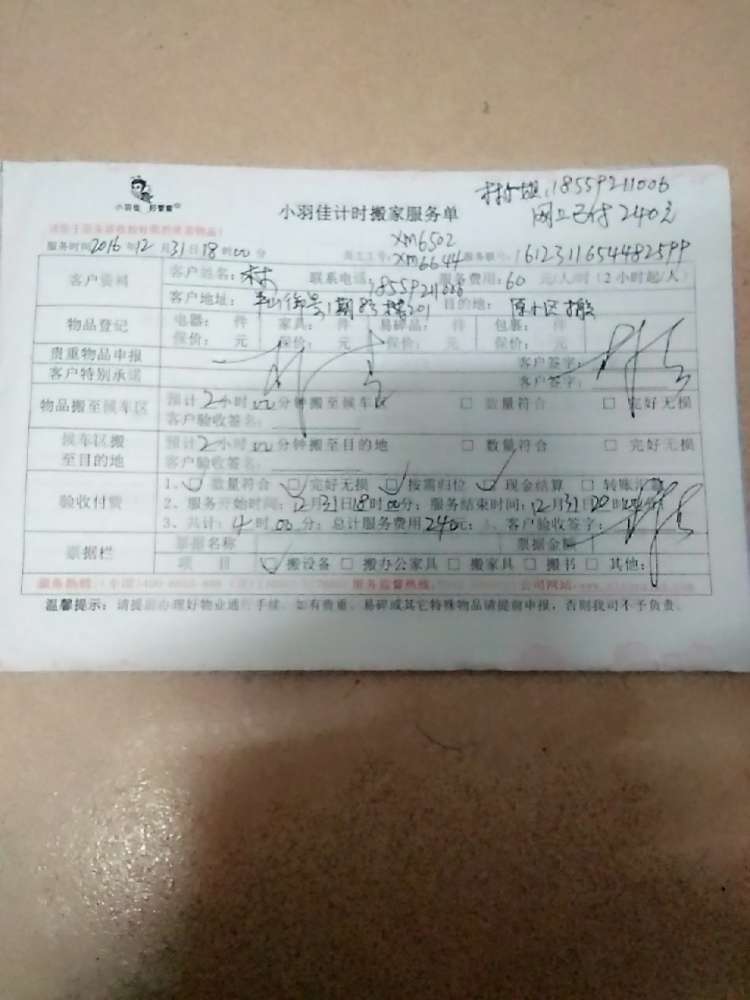 18559211006
网上已付240元
小羽佳 好管家
小羽佳计时搬家服务单
服务时间2016年12月31日18时00分
XM6502
XM6644
员工工号: 服务账号: 1612311654482599
客户资料
客户姓名: 林 联系电话: 服务费用:60 元/人/时(2小时起/人)
客户地址: 期 301 目的地: 原小区搬
物品登记
电器: 件 家具: 件 易碎品: 件 包裹: 件
保价: 元 保价: 元 保价: 元 保价: 元
贵重物品申报 客户签字:
客户特别承诺 客户签字:
物品搬至候车区
预计2小时00分钟搬至候车区 □ 数量符合 □ 完好无损
客户验收签名:
候车区搬至目的地
预计2小时00分钟搬至目的地 □ 数量符合 □ 完好无损
客户验收签名:
验收付费
1、□ 数量符合 □ 完好无损 □ 按需归位 □ 现金结算 □ 转账汇款
2、服务开始时间:12月31日18时00分; 服务结束时间:12月31日20时00分;
3、共计:4时00分; 总计服务费用240元; 客户验收签字:
票据栏
票据名称 票据金额
项 目 □ 搬设备 □ 搬办公家具 □ 搬家具 □ 搬书 □ 其他:
服务热线: 服务监督热线: 公司网站:
温馨提示: 请提前办理好物业通行手续。如有贵重、易碎或其它特殊物品请提前申报,否则我司不予负责。